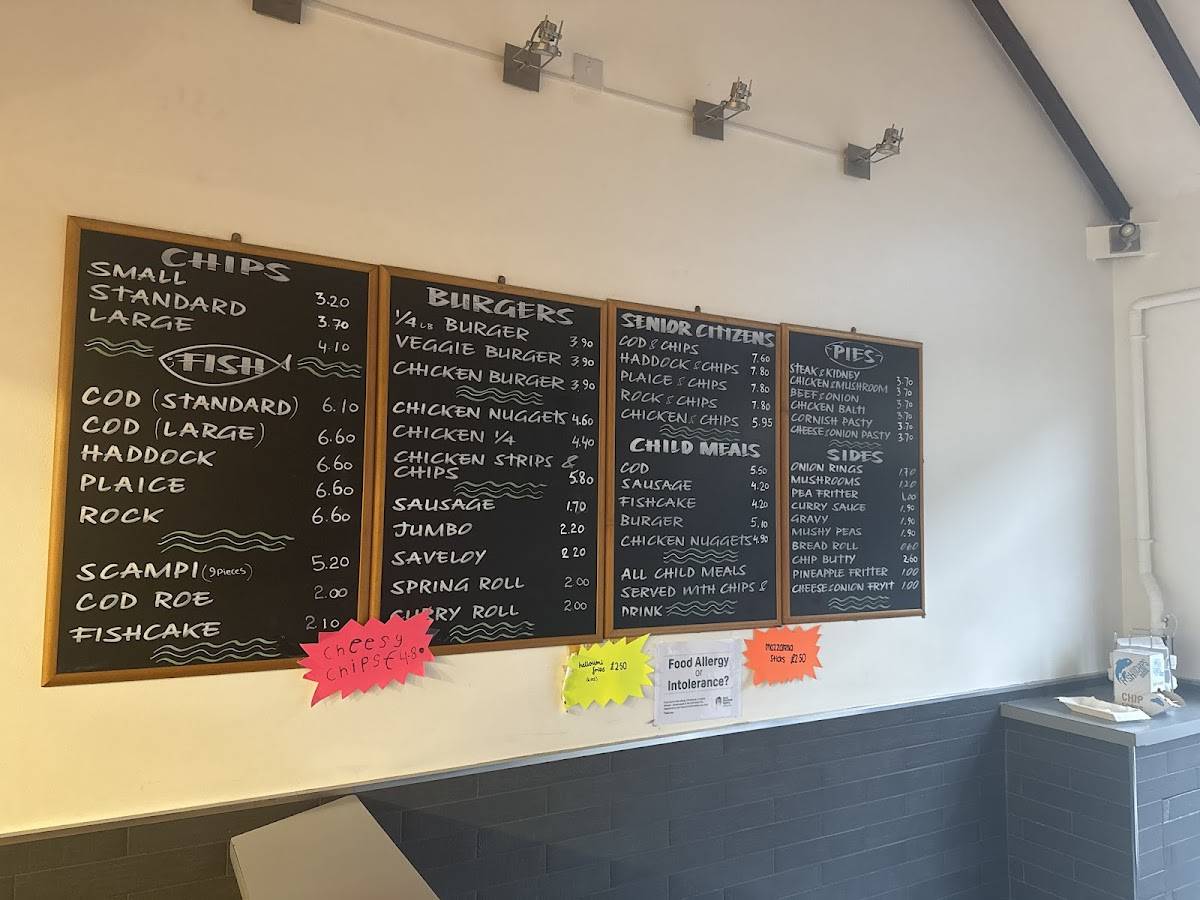 CHIPS
SMALL 3.20
STANDARD 3.70
LARGE 4.10
FISH
COD (STANDARD) 6.10
COD (LARGE) 6.60
HADDOCK 6.60
PLAICE 6.60
ROCK 6.60
SCAMPI (9 PIECES) 5.20
COD ROE 2.00
FISHCAKE 2.10
BURGERS
1/4 LB BURGER 3.90
VEGGIE BURGER 3.90
CHICKEN BURGER 3.90
CHICKEN NUGGETS 4.60
CHICKEN 1/4 4.40
CHICKEN STRIPS &
CHIPS 5.80
SAUSAGE 1.70
JUMBO 2.20
SAVELOY 2.20
SPRING ROLL 2.00
CURRY ROLL 2.00
SENIOR CITIZENS
COD & CHIPS 7.60
HADDOCK & CHIPS 7.80
PLAICE & CHIPS 7.80
ROCK & CHIPS 7.80
CHICKEN & CHIPS 5.95
CHILD MEALS
COD 5.50
SAUSAGE 4.20
FISHCAKE 4.20
BURGER 5.10
CHICKEN NUGGETS 4.90
ALL CHILD MEALS
SERVED WITH CHIPS &
DRINK
PIES
STEAK & KIDNEY 3.70
CHICKEN & MUSHROOM 3.70
BEEF & ONION 3.70
CHICKEN BALTI 3.70
CORNISH PASTY 3.70
CHEESE & ONION PASTY 3.70
SIDES
ONION RINGS 1.70
MUSHROOMS 1.20
PEA FRITTER 1.00
CURRY SAUCE 1.90
GRAVY 1.90
MUSHY PEAS 1.90
BREAD ROLL
CHIP BUTTY 2.60
PINEAPPLE FRITTER 1.00
CHEESE & ONION FRYIT 1.00
Cheesy
Chips £4.80
Halloumi
fries £2.50
Food Allergy
or
Intolerance?
Mozzarella
Sticks £2.50
CHIP